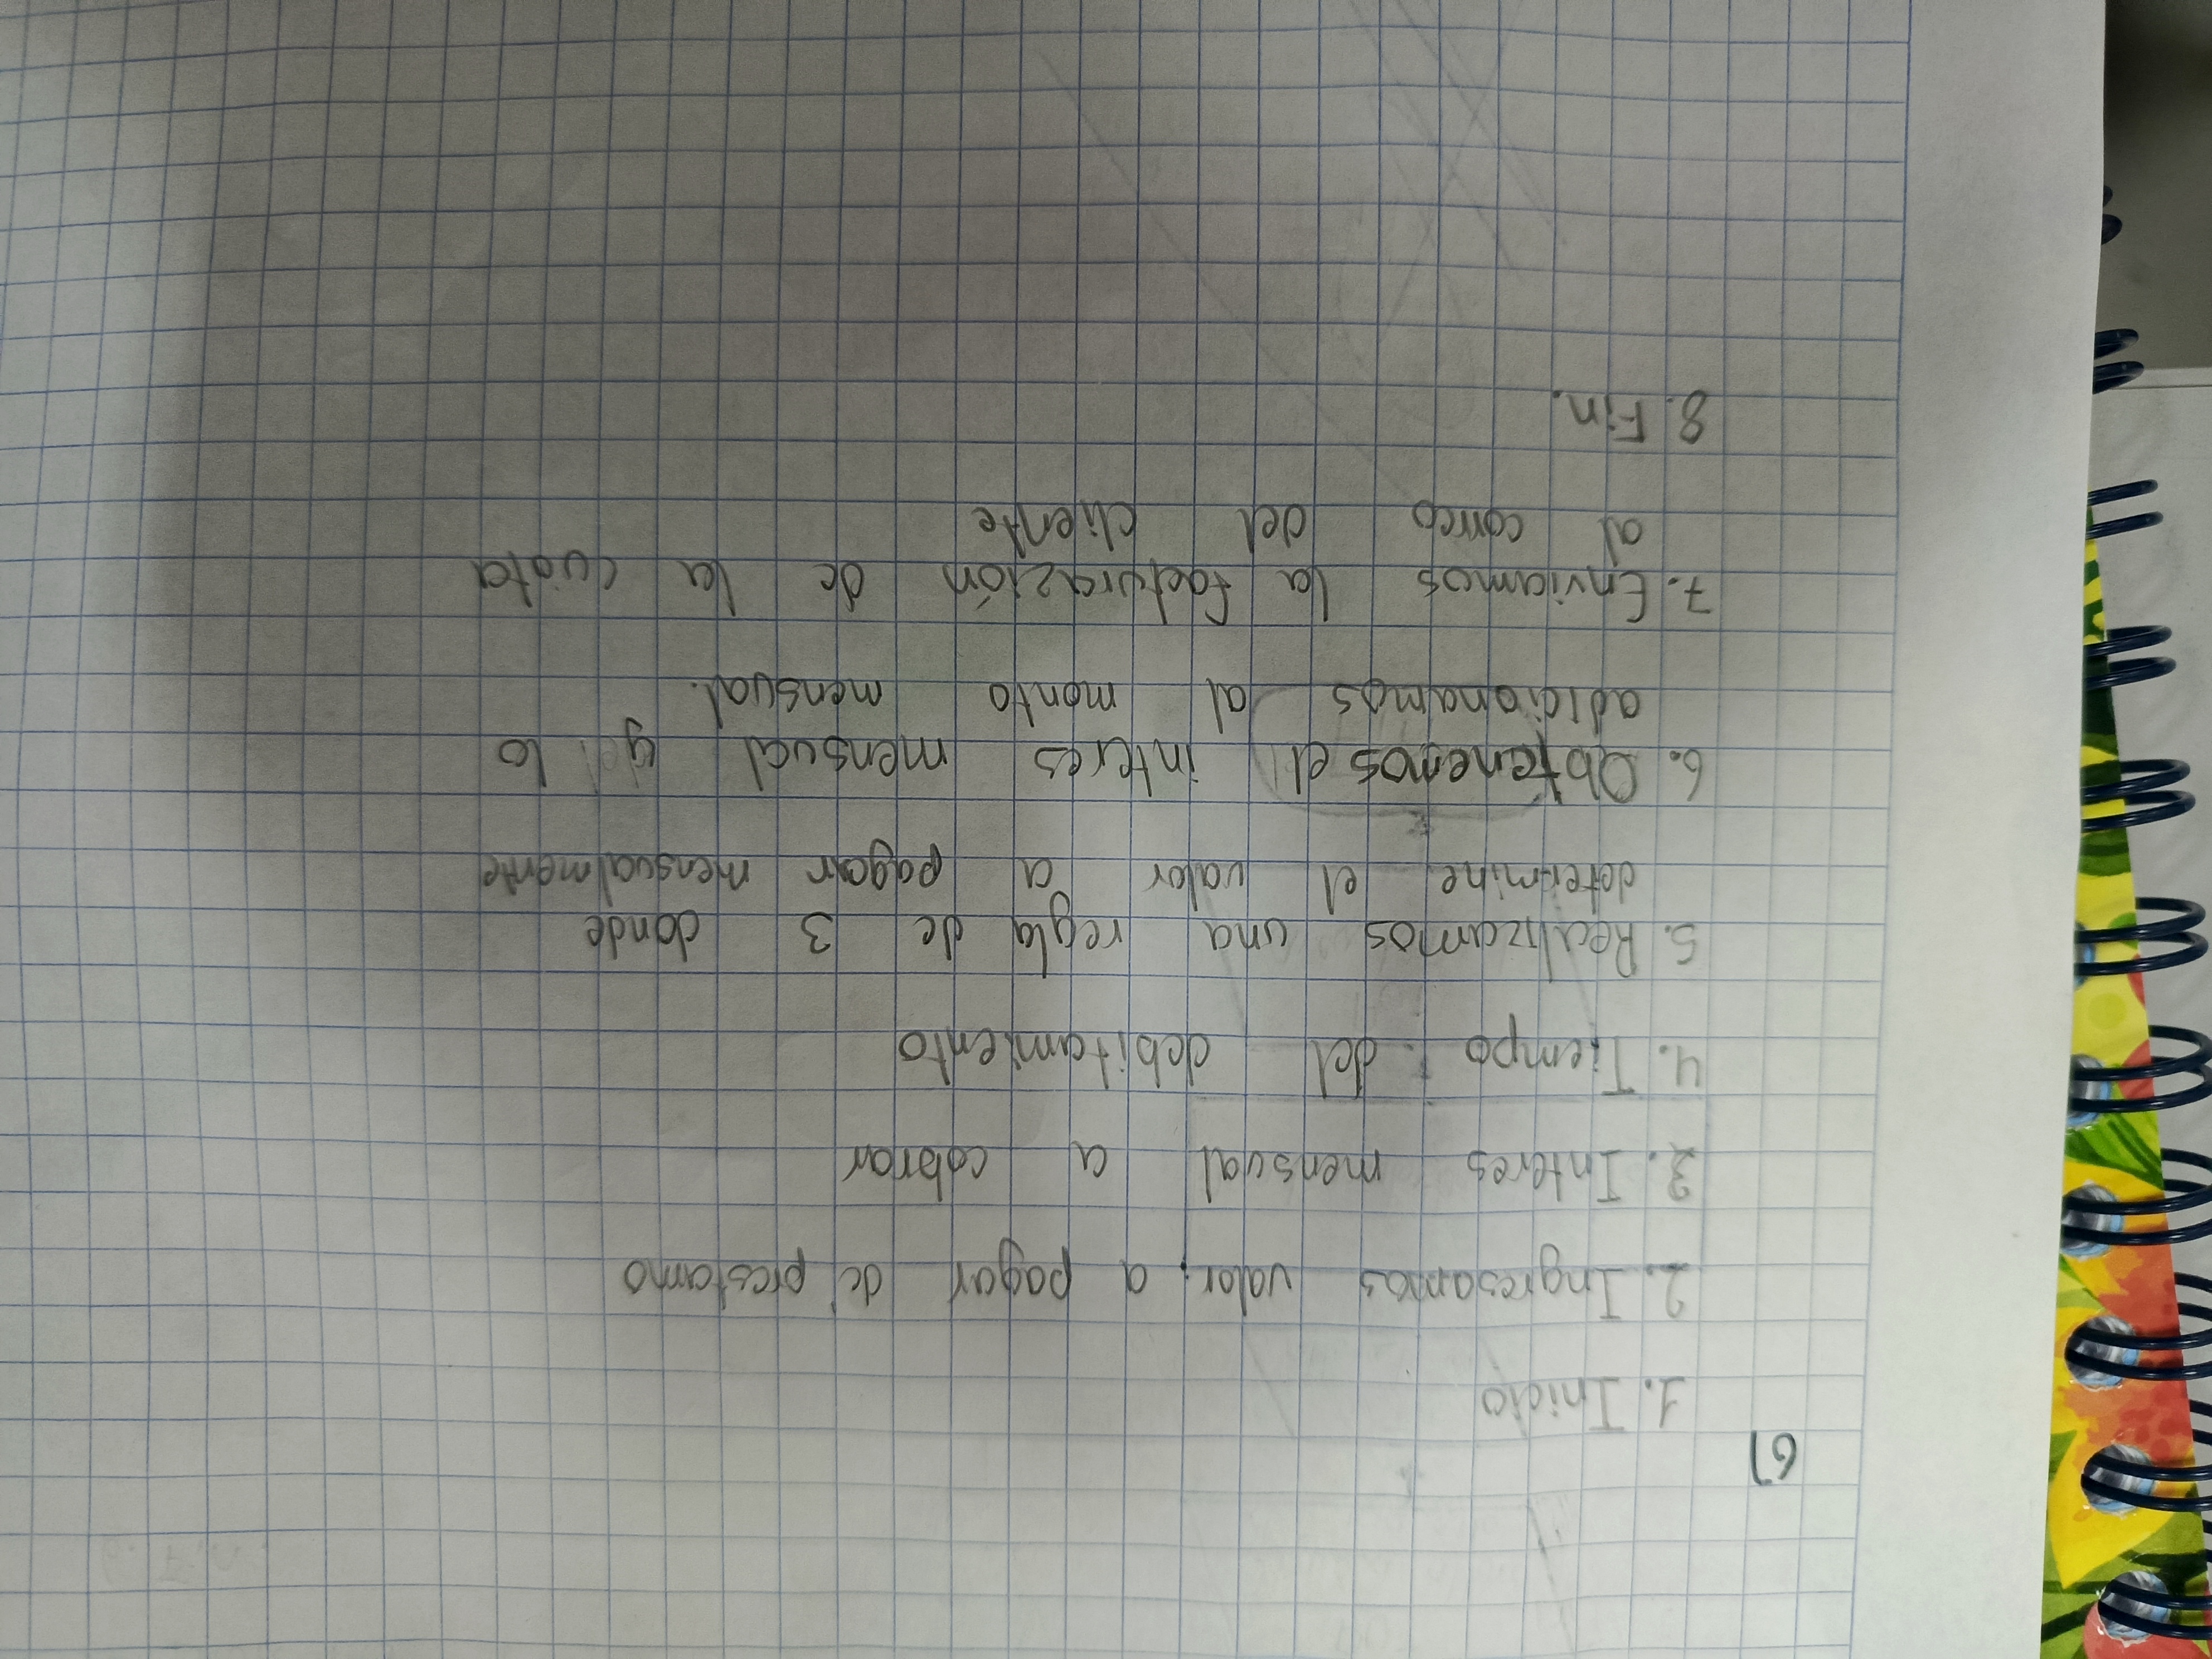 6)
1. Inicio
2. Ingresamos valor a pagar de prestamo
3. Interes mensual a cobrar
4. Tiempo del debitamiento
5. Realizamos una regla de 3 donde
determine el valor a pagar mensualmente
6. Obtenemos el interes mensual y lo
adicionamos al monto mensual.
7. Enviamos la facturazión de la cuota
al correo del cliente
8. Fin.